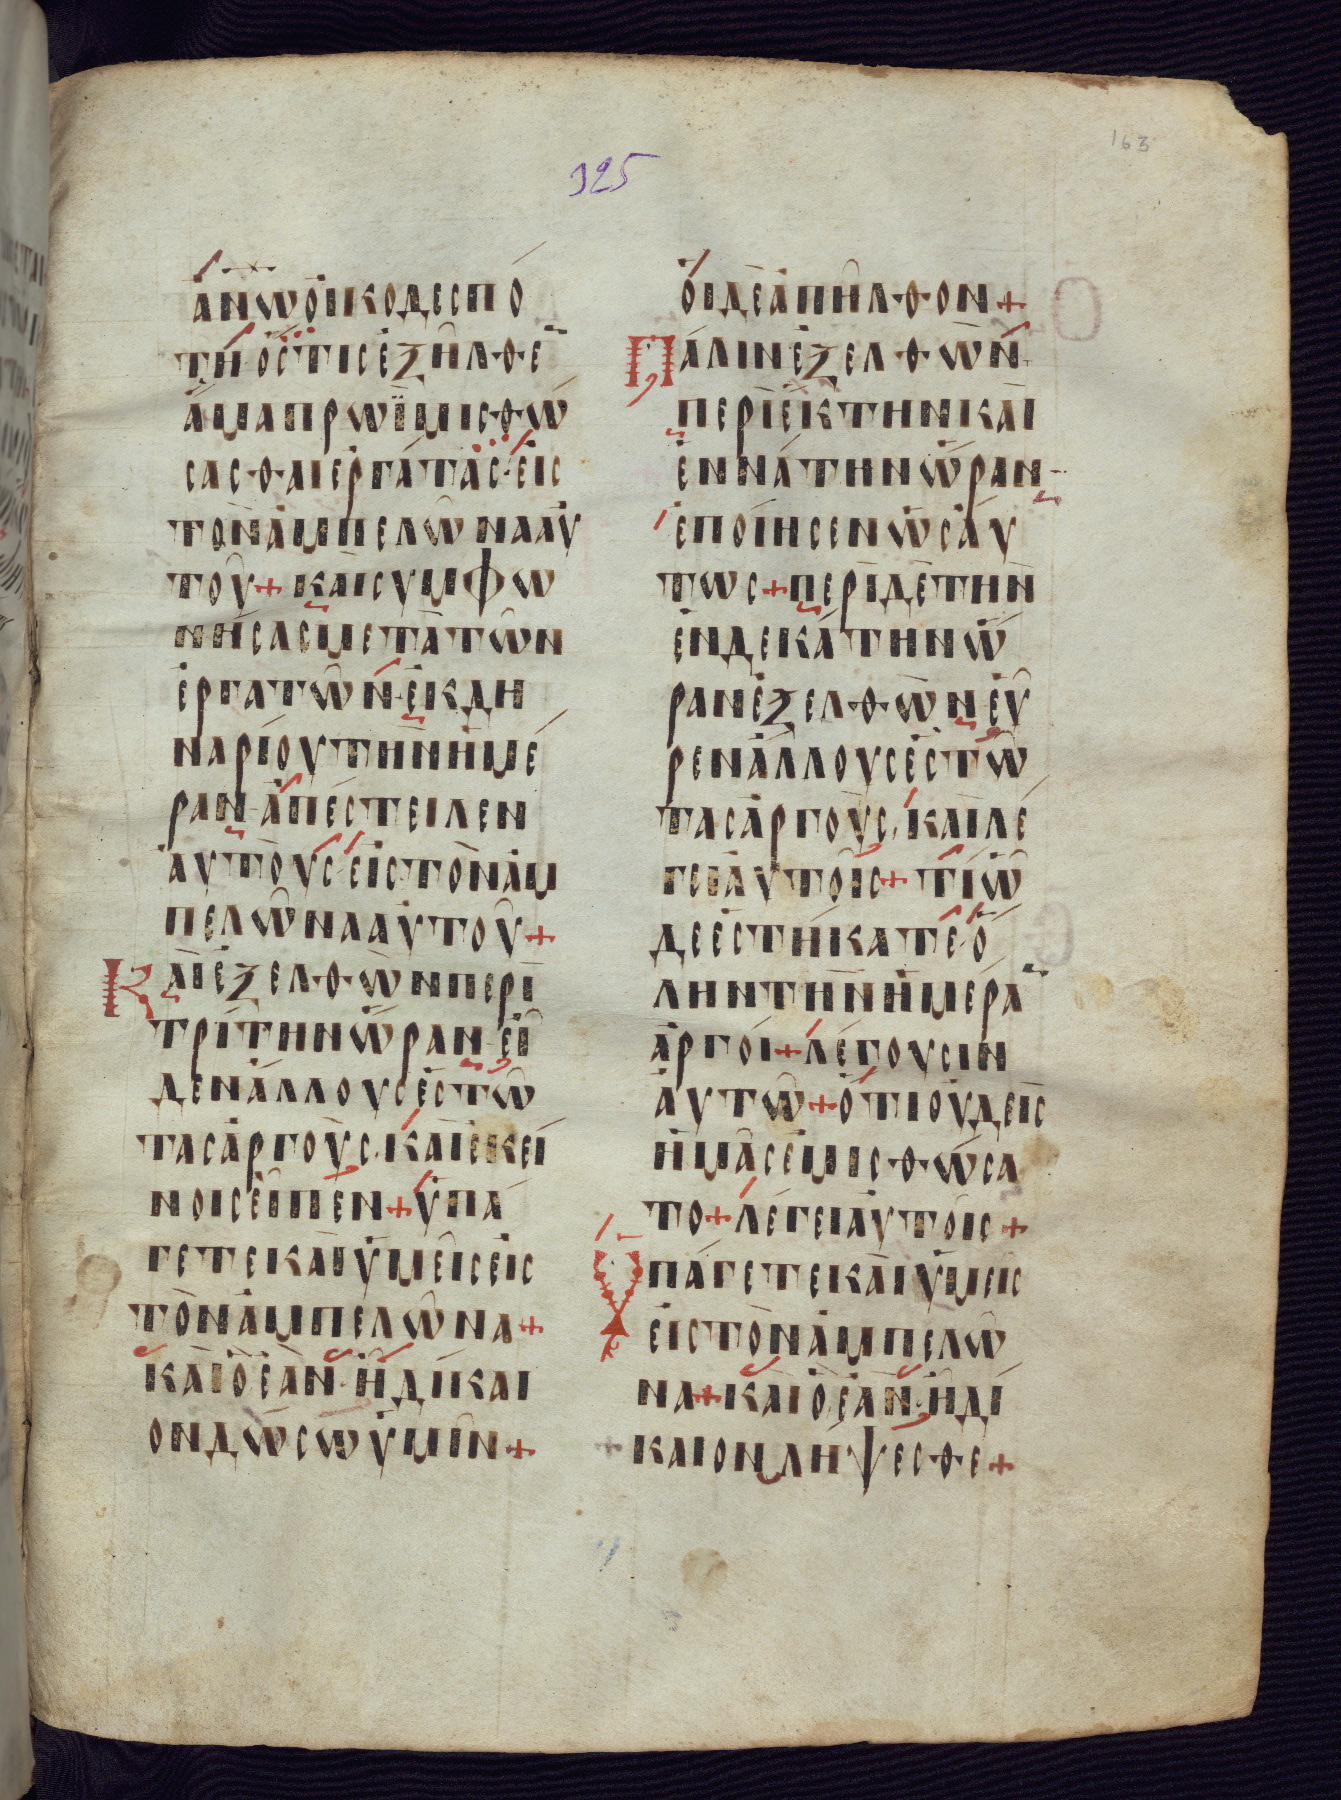 325
163
ΑΝΩΟΙΚΟΔΕϹΠΟ
ΤΗΟϹΤΙϹΕΞΗΛΘΕ
ΑΜΑΠΡΩΪΜΙϹΘΩ
ϹΑϹΘΑΙΕΡΓΑΤΑϹΕΙϹ
ΤΟΝΑΜΠΕΛΩΝΑΑΥ
ΤΟΥ+ΚΑΙϹΥΜΦΩ
ΝΗϹΑϹΜΕΤΑΤΩΝ
ΕΡΓΑΤΩΝΕΚΔΗ
ΝΑΡΙΟΥΤΗΝΗΜΕ
ΡΑΝΑΠΕϹΤΕΙΛΕΝ
ΑΥΤΟΥϹΕΙϹΤΟΝΑΜ
ΠΕΛΩΝΑΑΥΤΟΥ+
ΚΑΙΕΞΕΛΘΩΝΠΕΡΙ
ΤΡΙΤΗΝΩΡΑΝΕΙ
ΔΕΝΑΛΛΟΥϹΕϹΤΩ
ΤΑϹΑΡΓΟΥϹΚΑΙΕΚΕΙ
ΝΟΙϹΕΙΠΕΝ+ΥΠΑ
ΓΕΤΕΚΑΙΥΜΕΙϹΕΙϹ
ΤΟΝΑΜΠΕΛΩΝΑ+
ΚΑΙΟΕΑΝΗΔΙΚΑΙ
ΟΝΔΩϹΩΥΜΙΝ+
ΟΙΔΕΑΠΗΛΘΟΝ+
ΠΑΛΙΝΕΞΕΛΘΩΝ
ΠΕΡΙΕΚΤΗΝΚΑΙ
ΕΝΝΑΤΗΝΩΡΑΝ
ΕΠΟΙΗϹΕΝΩϹΑΥ
ΤΩϹ+ΠΕΡΙΔΕΤΗΝ
ΕΝΔΕΚΑΤΗΝΩ
ΡΑΝΕΞΕΛΘΩΝΕΥ
ΡΕΝΑΛΛΟΥϹΕϹΤΩ
ΤΑϹΑΡΓΟΥϹΚΑΙΛΕ
ΓΕΙΑΥΤΟΙϹ+ΤΙΩ
ΔΕΕϹΤΗΚΑΤΕΟ
ΛΗΝΤΗΝΗΜΕΡΑ
ΑΡΓΟΙ+ΛΕΓΟΥϹΙΝ
ΑΥΤΩ+ΟΤΙΟΥΔΕΙϹ
ΗΜΑϹΕΜΙϹΘΩϹΑ
ΤΟ+ΛΕΓΕΙΑΥΤΟΙϹ+
ΥΠΑΓΕΤΕΚΑΙΥΜΕΙϹ
ΕΙϹΤΟΝΑΜΠΕΛΩ
ΝΑ+ΚΑΙΟΕΑΝΗΔΙ
ΚΑΙΟΝΛΗΨΕϹΘΕ+